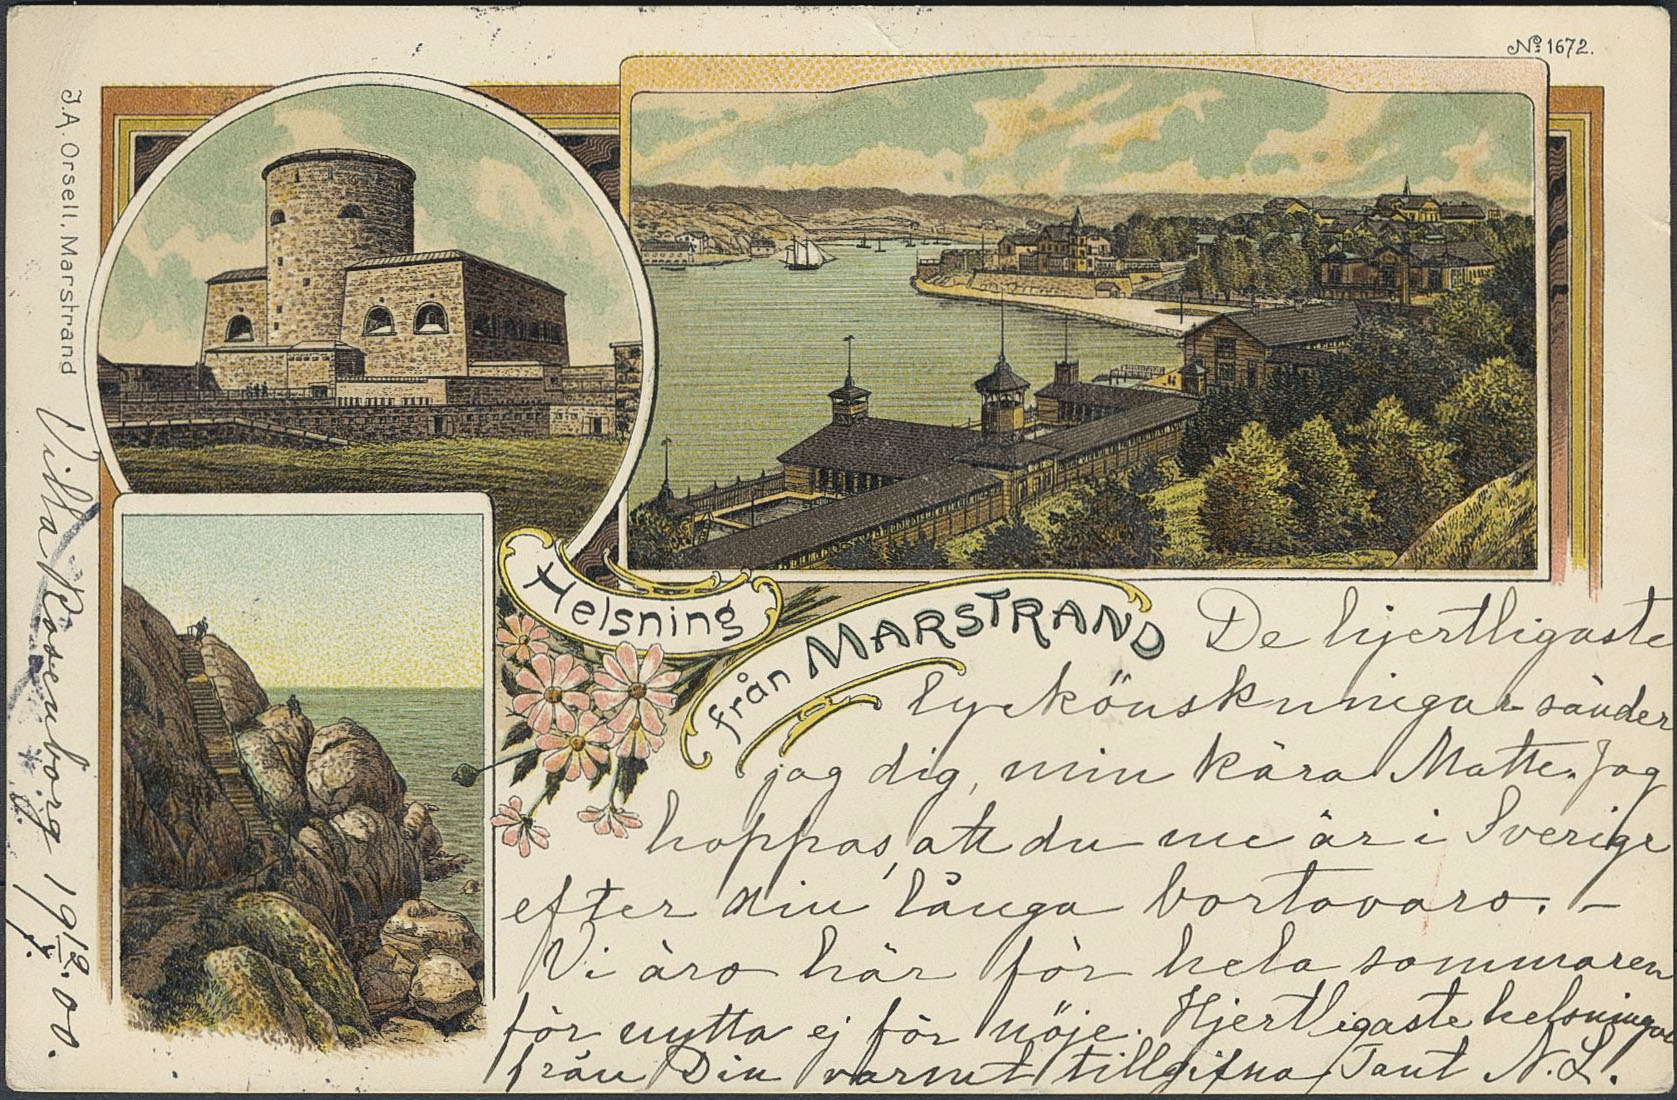 Nº 1672.
J.A. Orsell, Marstrand
Helsning
från MARSTRAND
De hjertligaste
lyckönskningar sänder
jag dig, min kära Matte. Jag
hoppas, att du nu är i Sverige
efter din långa bortovaro. –
Vi äro här för hela sommaren
för nytta ej för nöje. Hjertligaste helsningar
från Din varmt tillgifna Tant N. L.
Villa Rosenborg 19 12/7. 00.